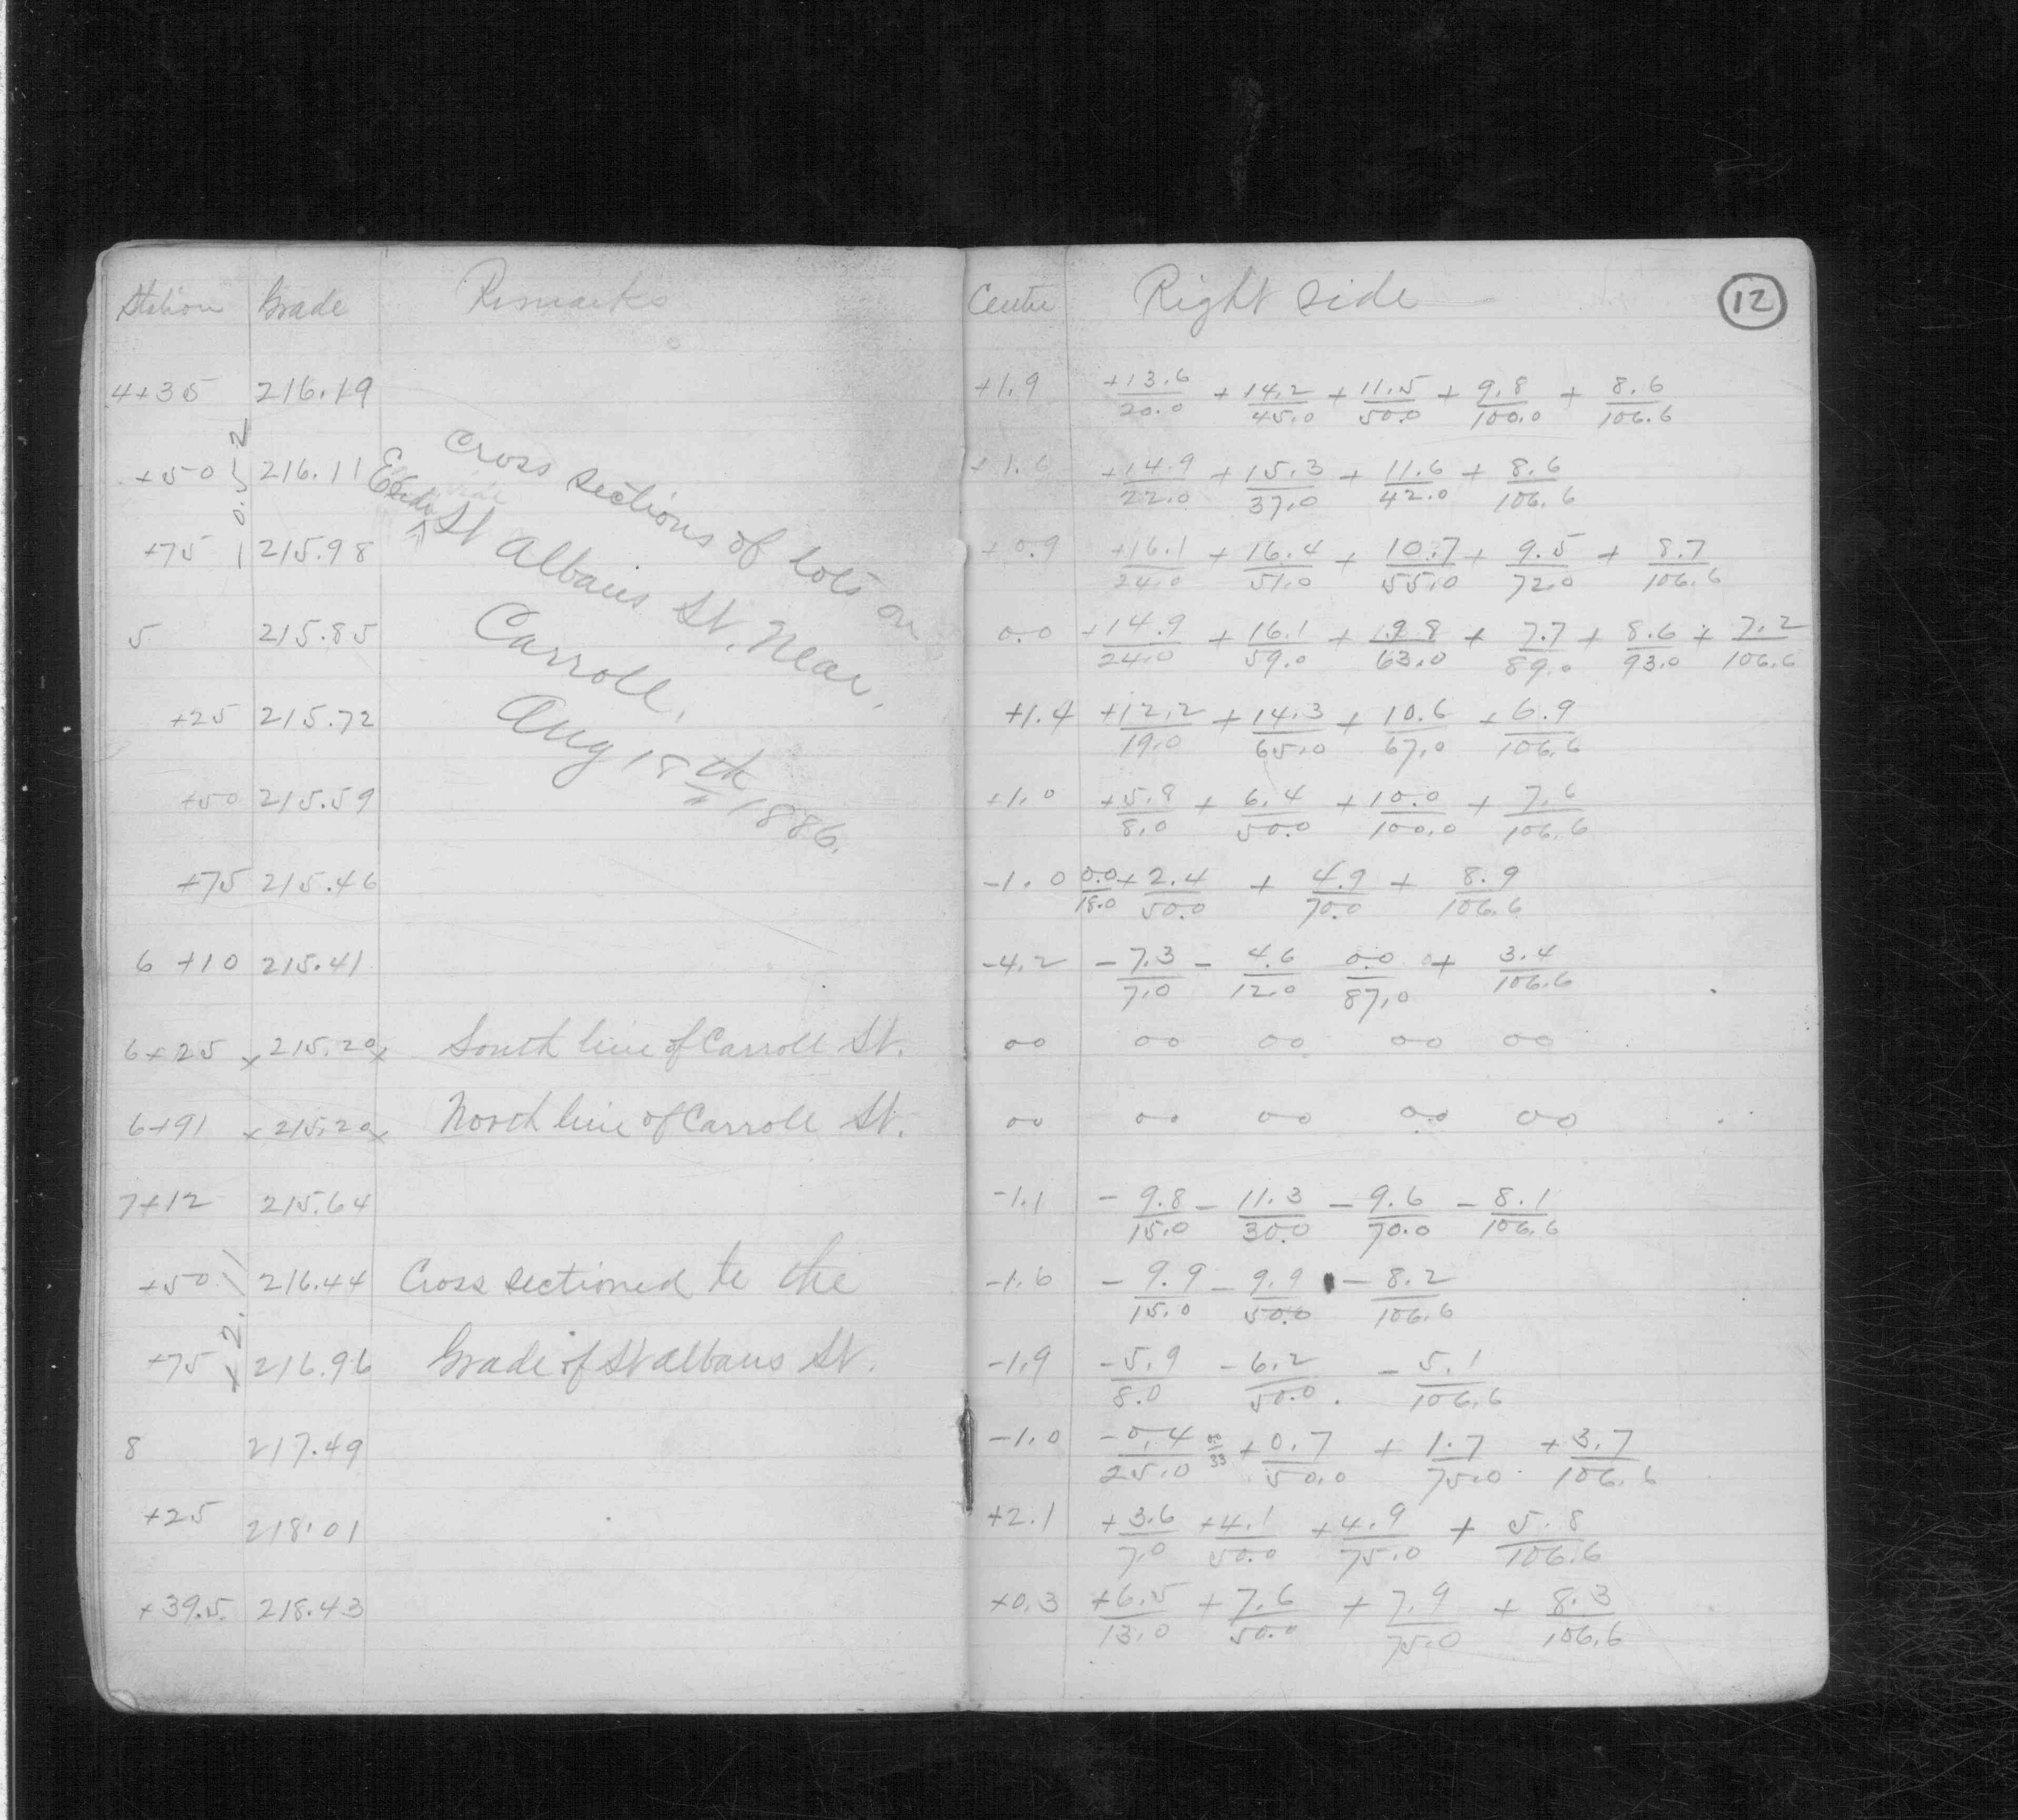 Station Grade Remarks Centre Right side 12
4+35 216.19 +1.9 +13.6/20.0 +14.2/45.0 +11.5/50.0 +9.8/100.0 +8.6/106.6
+50 216.11 +14.9/22.0 +15.3/37.0 +11.6/42.0 +8.6/106.6
0.52
+75 215.98 +0.9 +16.1/24.0 +16.4/51.0 +10.7/55.0 +9.5/72.0 +8.7/106.6
Cross sections of lots on
East side St Albans St. Near
Carroll,
Aug 18th 1886.
5 215.85 0.0 +14.9/24.0 +16.1/59.0 +9.8/63.0 +7.7/89.0 +8.6/93.0 +7.2/106.6
+25 215.72 +1.4 +12.2/19.0 +14.3/65.0 +10.6/67.0 +6.9/106.6
+50 215.59 +1.0 +5.8/8.0 +6.4/50.0 +10.0/100.0 +7.6/106.6
+75 215.46 -1.0 0.0/18.0 +2.4/50.0 +4.9/70.0 +8.9/106.6
6 +10 215.41 -4.2 -7.3/7.0 -4.6/12.0 0.0/87.0 +3.4/106.6
6+25 x 215.20 x South line of Carroll St. 00 00 00 00 00
6+91 x 215.20 x North line of Carroll St. 00 00 00 0.0 00
7+12 215.64 -1.1 -9.8/15.0 -11.3/30.0 -9.6/70.0 -8.1/106.6
+50 216.44 Cross sectioned to the -1.6 -9.9/15.0 -9.9/50.0 -8.2/106.6
+2.
+75 216.96 Grade of St Albans St. -1.9 -5.9/8.0 -6.2/50.0 -5.1/106.6
8 217.49 -1.0 -0.4/25.0 0.0/33 +0.7/50.0 +1.7/75.0 +3.7/106.6
+25 218.01 +2.1 +3.6/7.0 +4.1/50.0 +4.9/75.0 +5.8/106.6
+39.5 218.43 +0.3 +6.5/13.0 +7.6/50.0 +7.9/75.0 +8.3/106.6